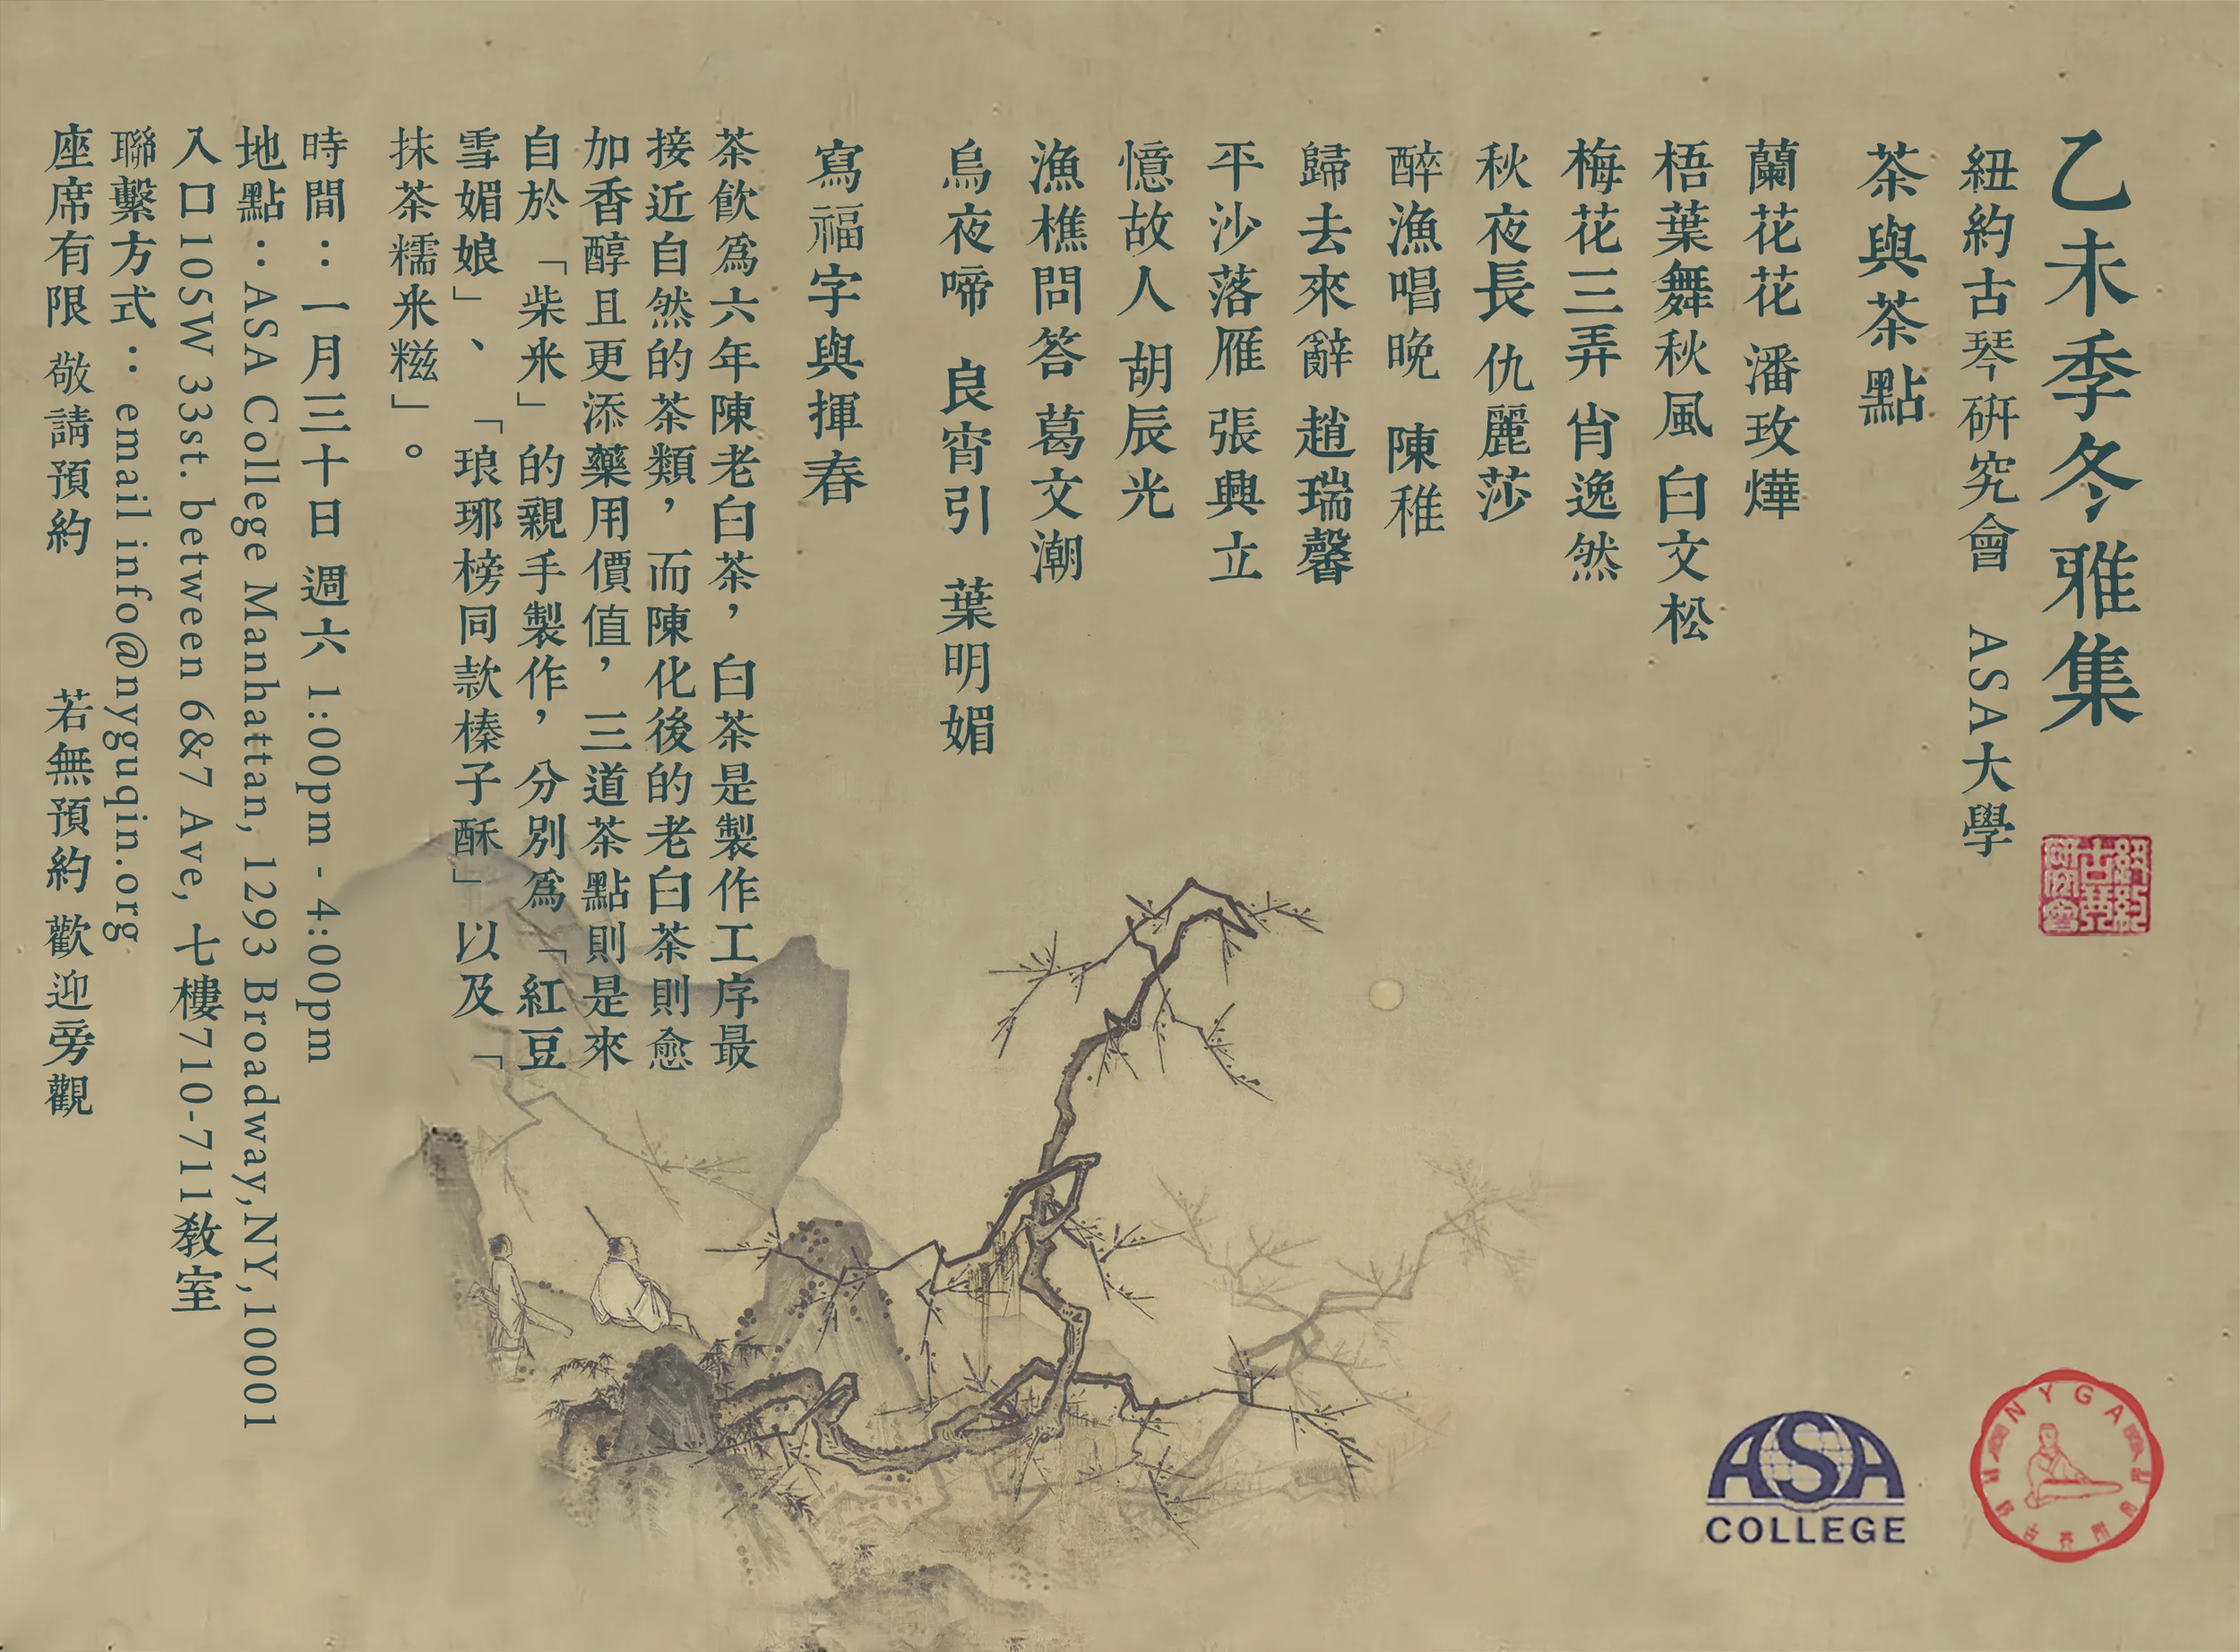 乙未季冬雅集
紐約古琴研究會 ASA大學
茶與茶點
蘭花花 潘玫燁
梧葉舞秋風 白文松
梅花三弄 肖逸然
秋夜長 仇麗莎
醉漁唱晚 陳稚
歸去來辭 趙瑞馨
平沙落雁 張興立
憶故人 胡辰光
漁樵問答 葛文潮
烏夜啼 良宵引 葉明媚
寫福字與揮春
茶飲爲六年陳老白茶，白茶是製作工序最
接近自然的茶類，而陳化後的老白茶則愈
加香醇且更添藥用價值，三道茶點則是來
自於「柴米」的親手製作，分別爲「紅豆
雪媚娘」、「琅琊榜同款榛子酥」以及「
抹茶糯米糍」。
時間：一月三十日 週六 1:00pm - 4:00pm
地點：ASA College Manhattan, 1293 Broadway,NY,10001
入口105W 33st. between 6&7 Ave, 七樓710-711教室
聯繫方式：email info@nyguqin.org
座席有限 敬請預約 若無預約 歡迎旁觀
紐約
古琴
研究會
ASA
COLLEGE
NYGA